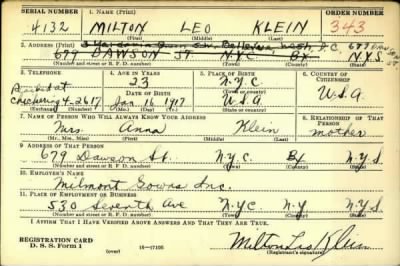 SERIAL NUMBER 1. NAME (Print) ORDER NUMBER
4132 MILTON LEO KLEIN 343
(First) (Middle) (Last)
2. ADDRESS (Print) D.C. 679 DAWSON ST
679 DAWSON ST. N.Y.C. Bx N.Y.S.
(Number and street or R. F. D. number) (Town) (County) (State)
3. TELEPHONE 4. AGE IN YEARS 5. PLACE OF BIRTH 6. COUNTRY OF CITIZENSHIP
23 N.Y.C.
DATE OF BIRTH (Town or county)
4-2617 Jan 16 1917 U.S.A. U.S.A.
(Exchange) (No.) (Mo.) (Day) (Yr.) (State or country)
7. NAME OF PERSON WHO WILL ALWAYS KNOW YOUR ADDRESS 8. RELATIONSHIP OF THAT PERSON
Mrs. Anna Klein mother
(Mr., Mrs., Miss) (First) (Middle) (Last)
9. ADDRESS OF THAT PERSON
679 Dawson St. N.Y.C. Bx N.Y.S.
(Number and street or R. F. D. number) (Town) (County) (State)
10. EMPLOYER'S NAME
Milmont Gowns Inc.
11. PLACE OF EMPLOYMENT OR BUSINESS
530 Seventh Ave N.Y.C. N.Y. N.Y.S.
(Number and street or R. F. D. number) (Town) (County) (State)
I AFFIRM THAT I HAVE VERIFIED ABOVE ANSWERS AND THAT THEY ARE TRUE.
REGISTRATION CARD
D. S. S. Form 1 (over) 16—17105 Milton Leo Klein
(Registrant's signature)